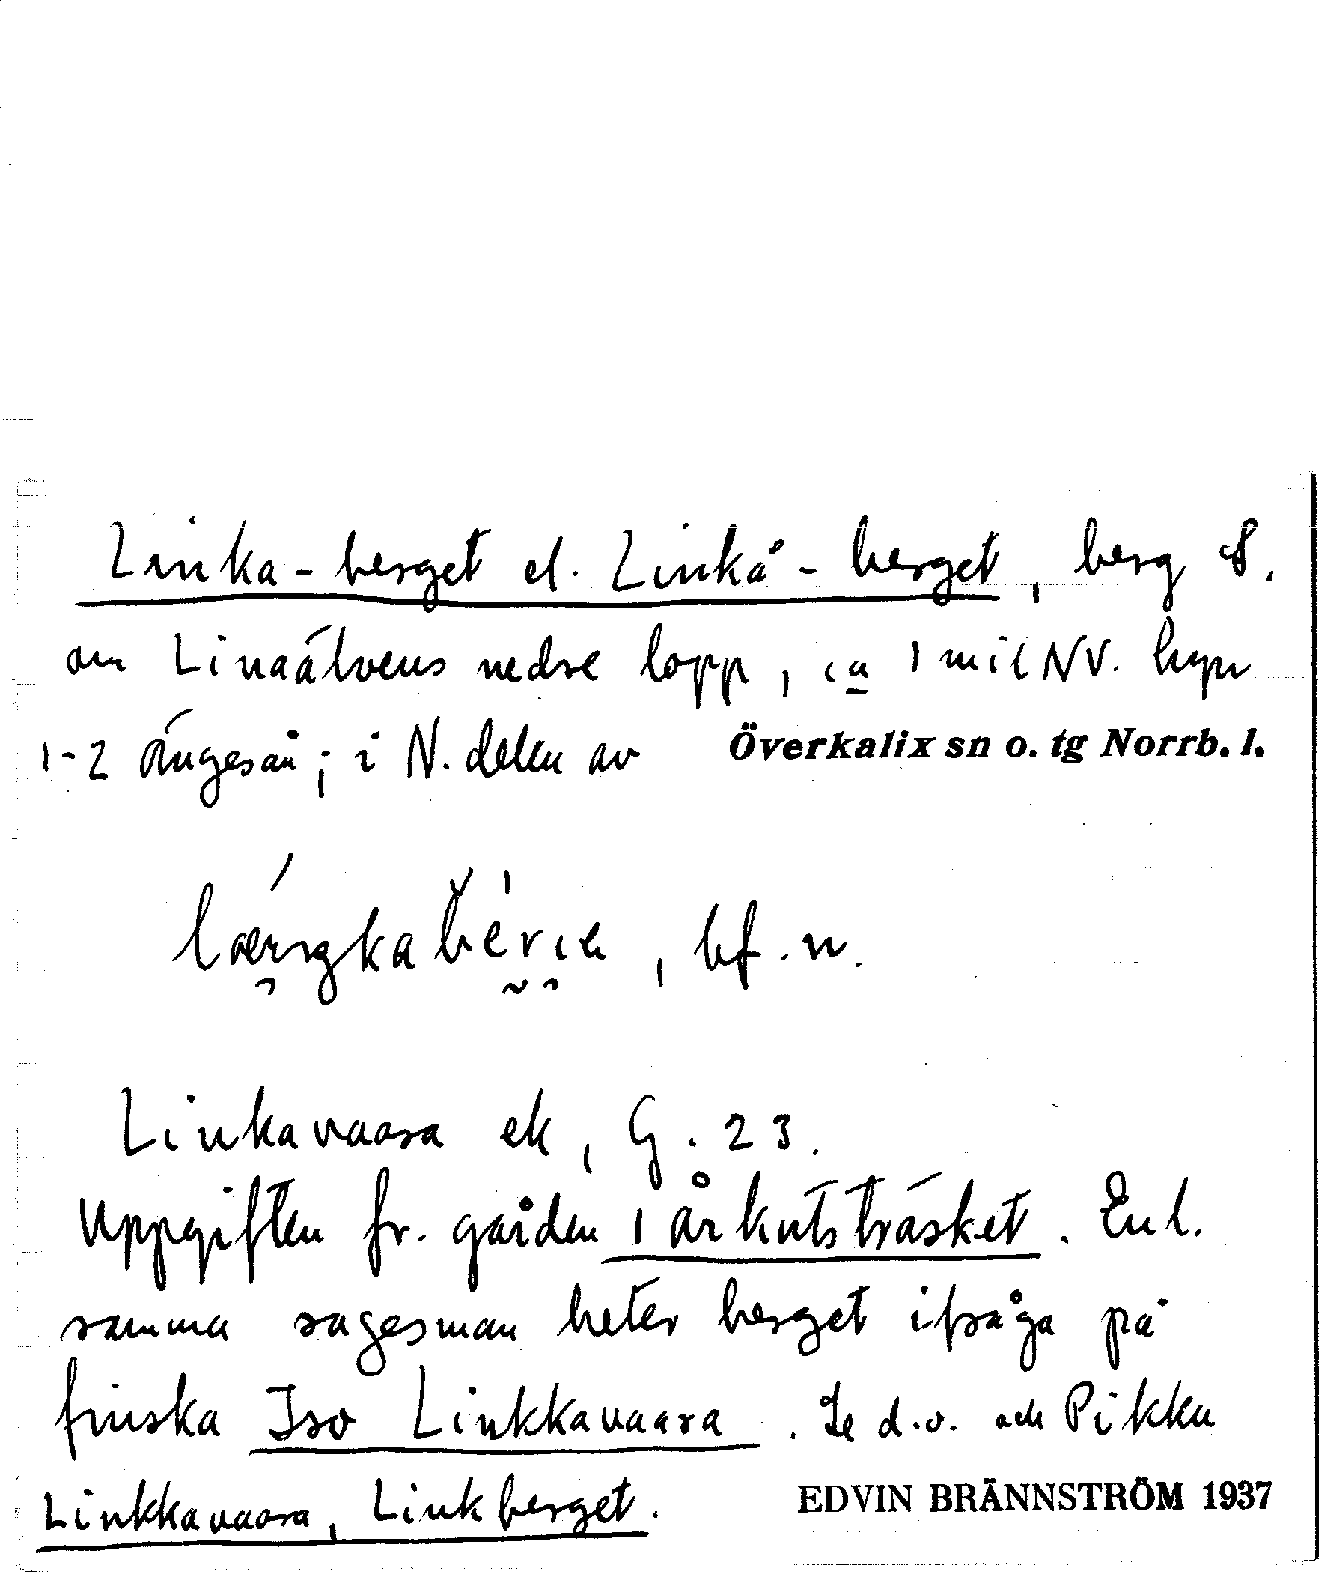 Linka-berget el. Linkå-berget, berg S.
om Linaälvens nedre lopp, ca 1 mil NV. byn
1-2 Ängesån; i N. delen av Överkalix sn o. tg Norrb. l.
bf. n.
Linkavaara ek, G. 23.
Uppgiften fr. gården i Årkutsträsket. Enl.
samma sagesman heter berget ifråga på
finska Iso Linkkavaara. Se d.o. och Pikku
Linkkavaara, Linkberget. EDVIN BRÄNNSTRÖM 1937